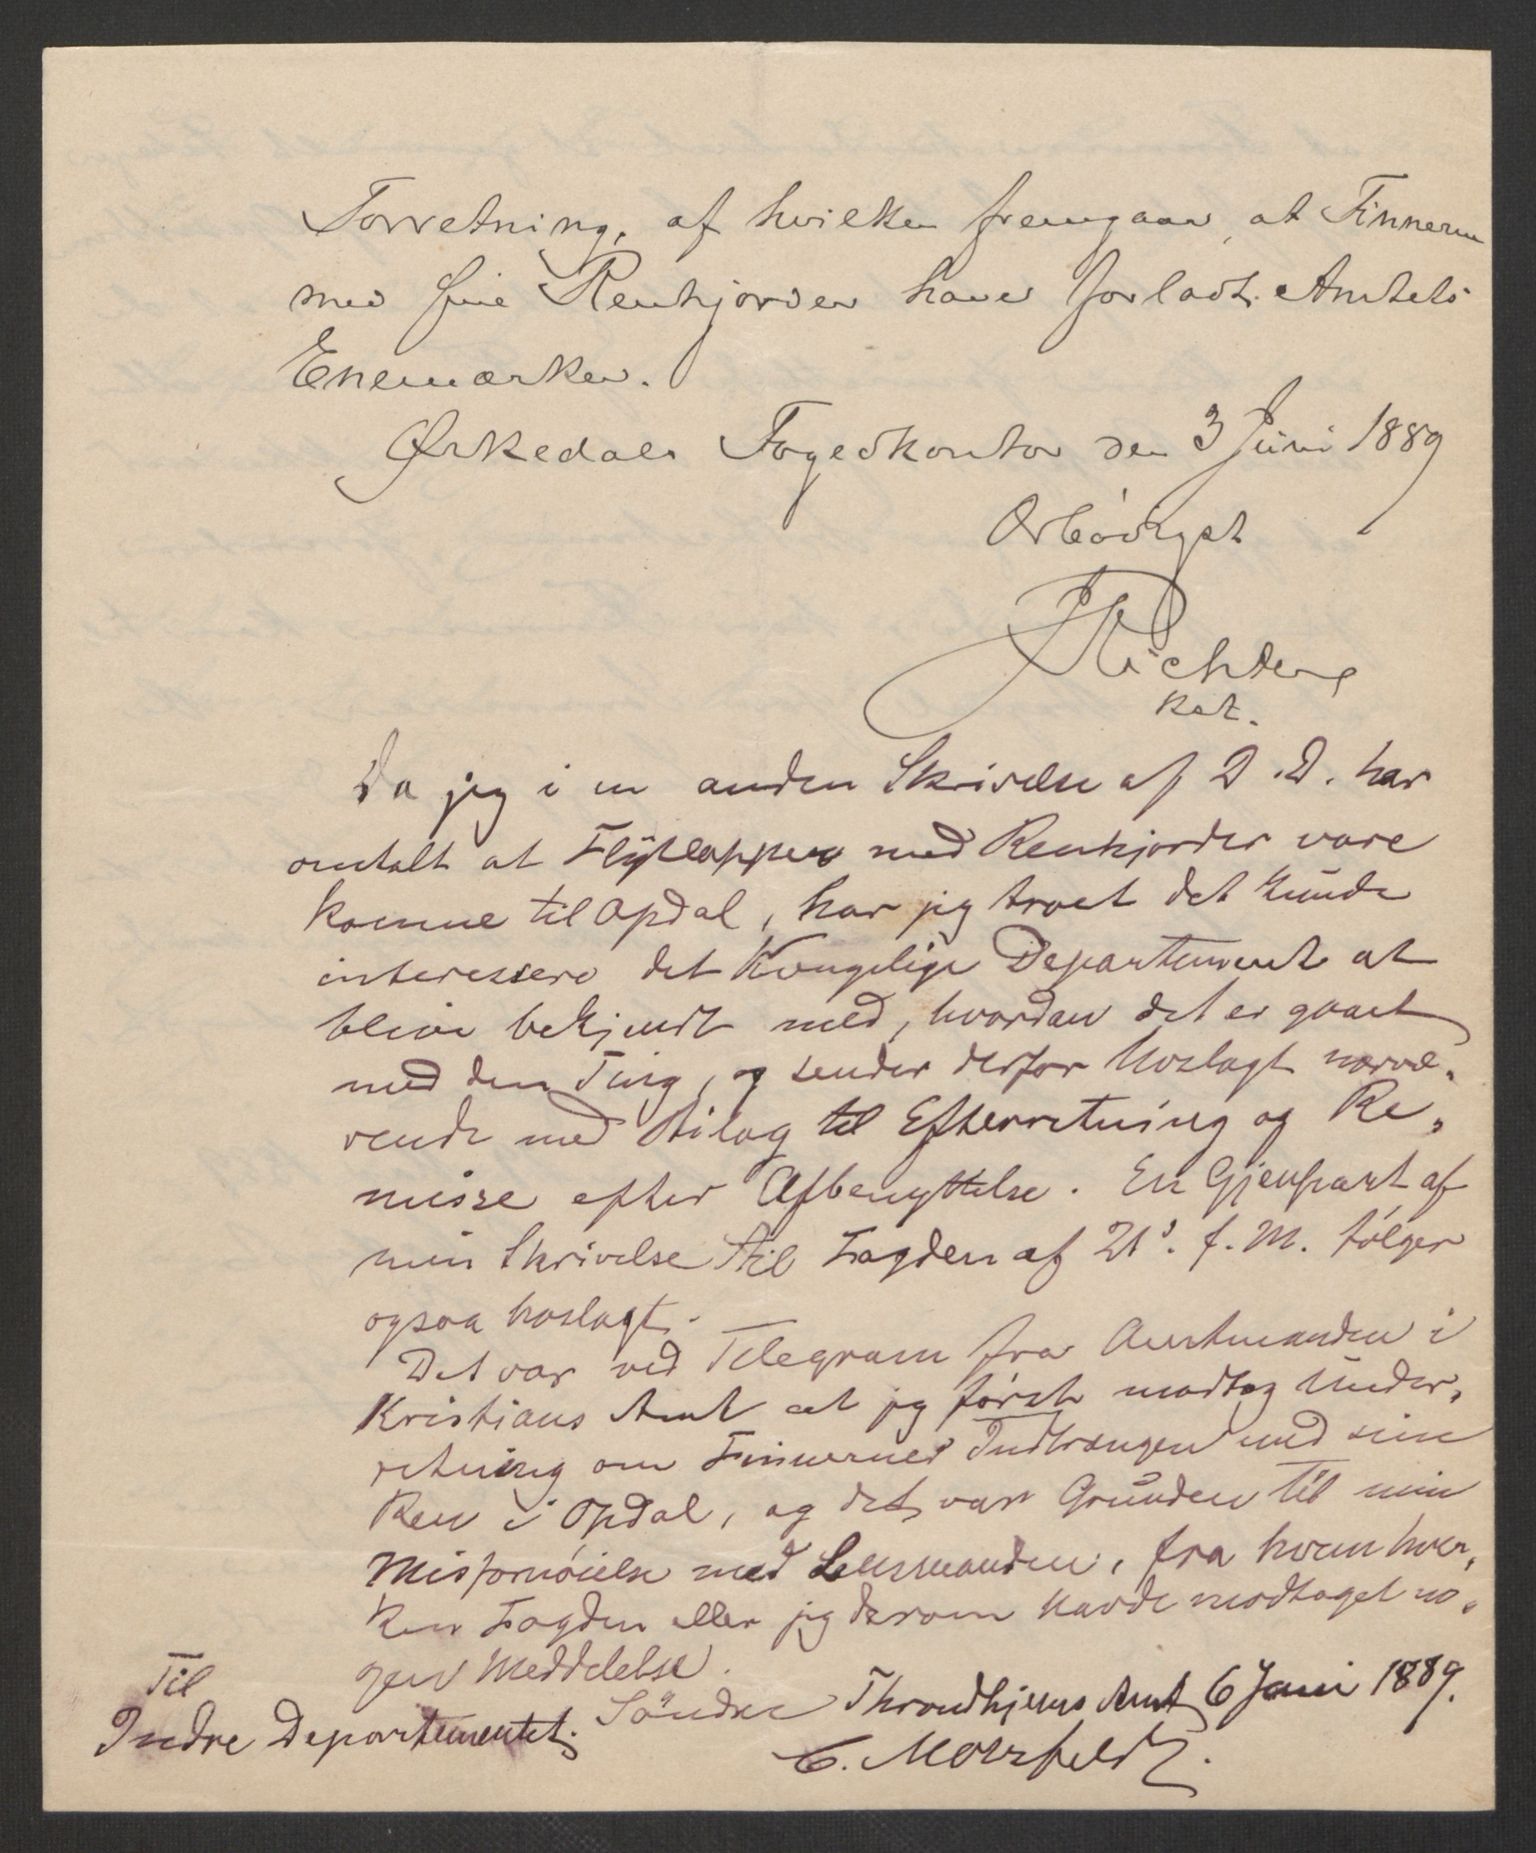 Forretning, af hvilken fremgaar, at Finnerne
med sine Renhjorder have forladt Amtets
Enemærker.
Ørkedals Fogedkontor den 3 Juni 1889
Ærbødigst
Richter
kst.
Da jeg i en anden Skrivelse af D.D. har
omtalt at Flytlapper med Renhjorder vare
komne til Opdal, har jeg troet det kunde
interessere det Kongelige Departement at
blive bekjendt med, hvordan det er gaaet
med den Ting, og sender derfor hoslagt nærvæ-
rende med Bilag til Efterretning og Re-
misse efter Afbenyttelse. En Gjenpart af
min Skrivelse til Fogden af 21s. f. M. følger
ogsaa hoslagt.
Det var ved Telegram fra Amtmanden i
Kristians Amt at jeg først modtog Under-
retning om Finnernes Indtrængen med sine
Ren i Opdal, og det var Grunden til min
Misfornøielse med Lensmanden, fra hvem hver-
ken Fogden eller jeg derom havde modtaget no-
gen Meddelelse.
Søndre Throndhjems Amt 6 Juni 1889.
C. Motzfeldt.
Til
Indre Departementet.